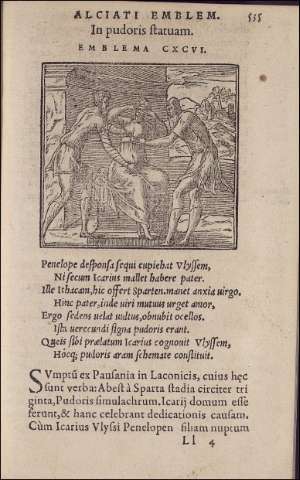 ALCIATI EMBLEM. 535
In pudoris statuam.
EMBLEMA CXCVI.
Penelope desponsa sequi cupiebat Vlyssem,
Ni secum Icarius mallet habere pater.
Ille Ithacam, hic offert Sparten. manet anxia virgo.
Hinc pater, inde viri mutuus urget amor,
Ergo sedens velat vultus, obnubit ocellos.
Ista verecundi signa pudoris erant.
Queis sibi prælatum Icarius cognouit Vlyssem,
Hocq; pudoris aram schemate constituit.
SVmptũ ex Pausania in Laconicis, cuius hęc
sunt verba: Abest à Sparta stadia circiter tri
ginta, Pudoris simulachrum. Icarij domum esse
ferunt, & hanc celebrant dedicationis causam.
Cùm Icarius Vlyssi Penelopen filiam nuptum
Ll 4